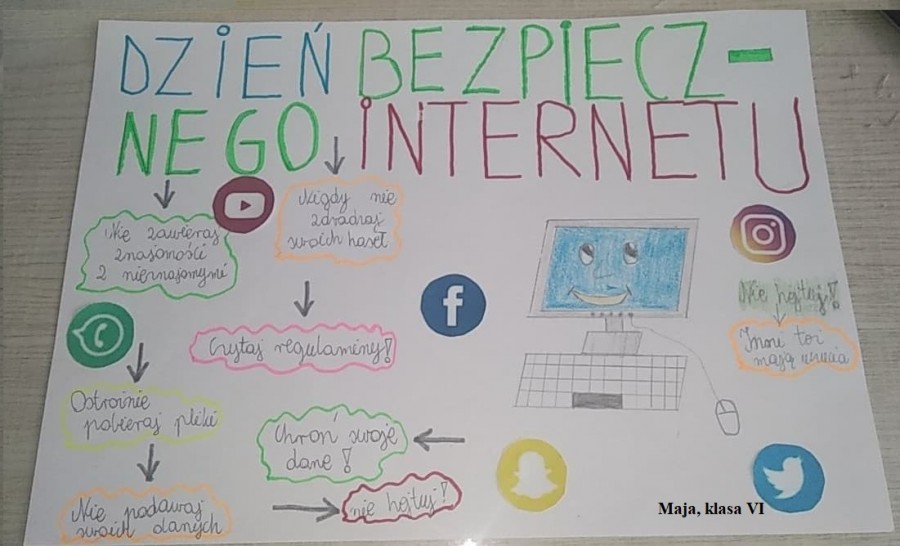 DZIEŃ BEZPIECZ-
NEGO INTERNETU
Nie zawieraj
znajomości
z nieznajomymi
Nigdy nie
zdradzaj
swoich haseł
Czytaj regulaminy!
Ostrożnie
pobieraj pliki
Nie podawaj
swoich danych
Chroń swoje
dane!
nie hejtuj!
Nie hejtuj!
Inni też
mają uczucia
Maja, klasa VI